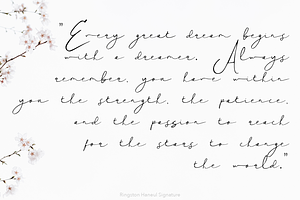 "Every great dream begins
with a dreamer. Always
remember, you have within
you the strength, the patience,
and the passion to reach
for the stars to change
the world."
Kingston Hansul Signature